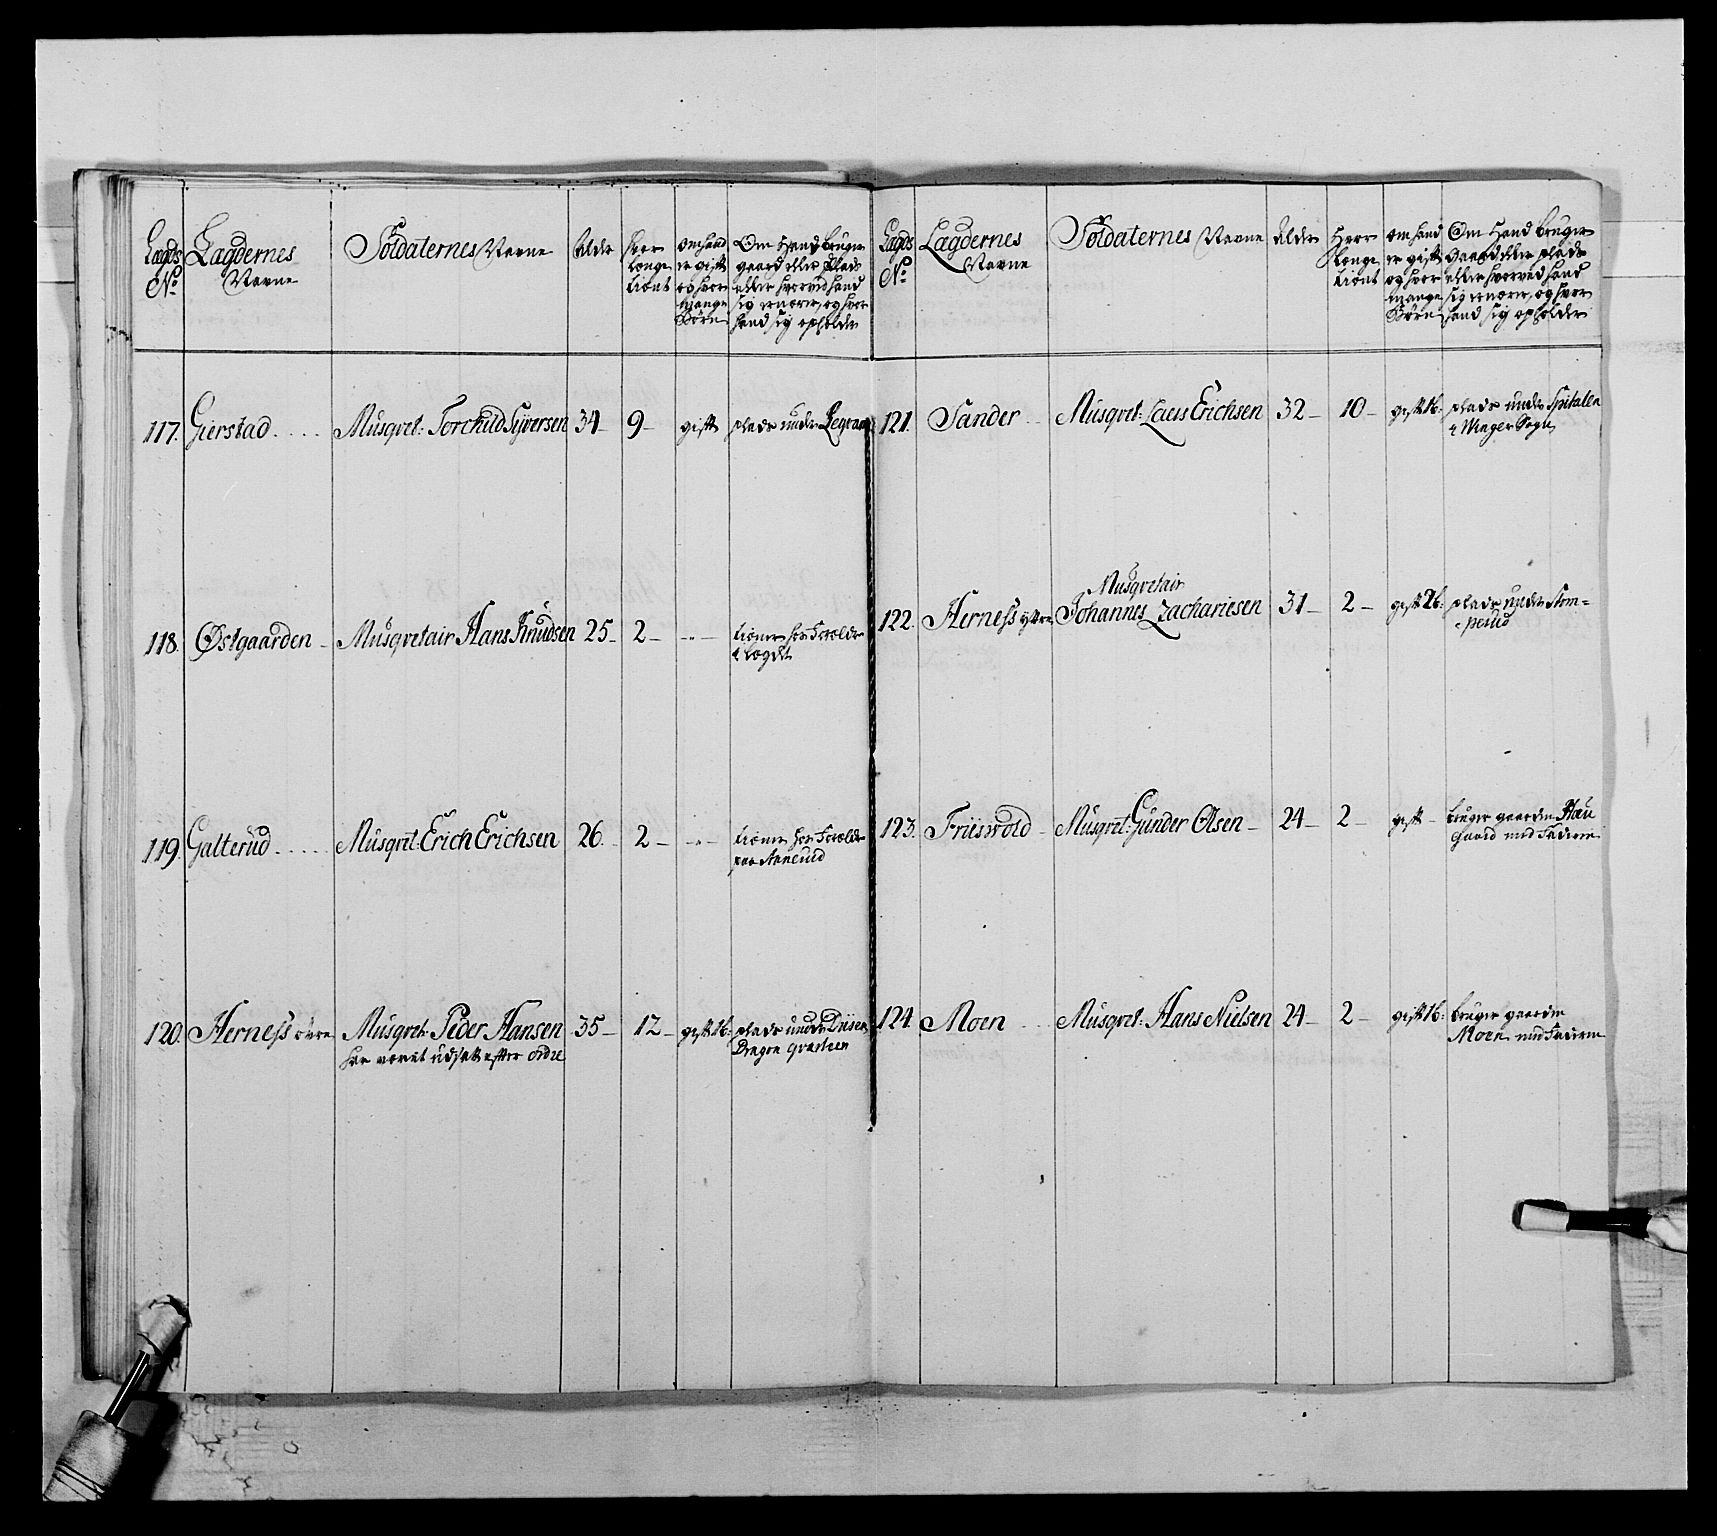 Lægds No.
Lægdernes Navne
Soldaternes Navne
Alder
hvor længe tient
om hand er gift og hvor mange Børn
Om Hand bruger gaard eller Plads eller hvorved hand sig ernærer, og hvor hand sig opholder
117. Gierstad .... Musqvet: Torchild Syversen 34 – 9 – gift plads under
118. Østgaarden – Musqvetair Hans Knudsen 25 – 2 – – .. – tiener hos Forældre
i Lægdet
119. Galterud ..... Musqvet: Erich Erichsen 26. – 2 – – .. – tiener hos Forældre
paa
120. Herness øvre Musqvet: Peder Hansen 35 – 12 – gift 1b: plads under Disen
har været udsatt efter ordre
Dragon qvarteer
Lægds No.
Lægdernes Navne
Soldaternes Navne
Alder
Hvor længe tient
om hand er gift og hvor mange Børn
Om Hand bruger Gaard eller plads eller hvorved hand sig ernærer, og hvor hand sig opholder
121. Sander .. Musqvet: Lars Erichsen 32 – 10 – gift 1b: plads under
i Winger Sogn
Musqvetair
122. Herness ytre Johannes Zachariesen 31 – 2 – gift 2b: plads under Stom=
=perud
123. Friisvold – Musqvet: Gunder Olsen – 24 – 2 – gift – bruger gaarden Hau
gaard med Faderen
124. Moen ... Musqvet: Hans Nielsen 24 – 2 – gift 1b: bruger gaarden
Moen med Faderen